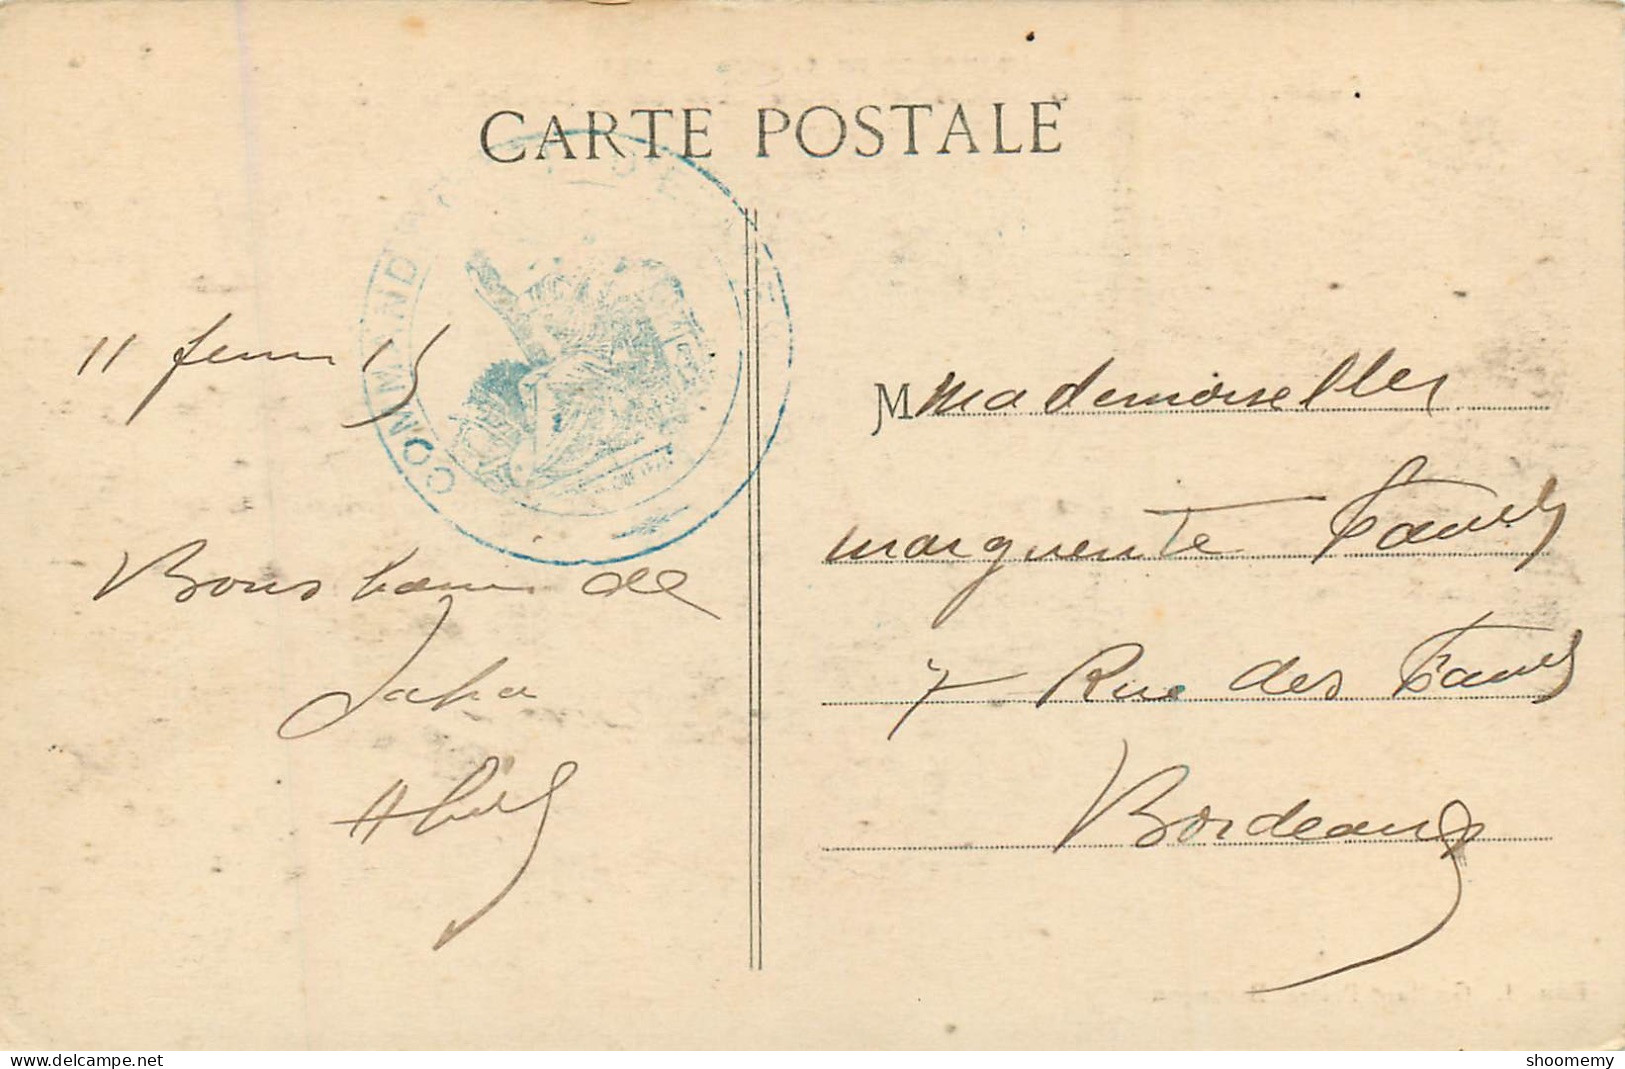 CARTE POSTALE
COMMAND
11 fevrier 15
Bons baisers de
Papa
M Mademoiselle
Marguerite
7 Rue des
Bordeaux
delcampe.net
shoomemy